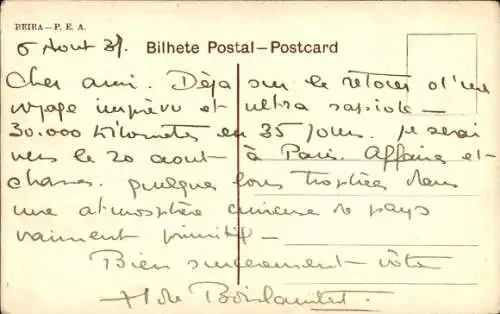 BEIRA—P. E. A.
6 Aout 37.
Bilhete Postal—Postcard
Cher ami. Déjà sur le retour d'un
voyage imprévu et ultra rapide —
30.000 kilomètres en 35 jours. je serai
vers le 20 aout à Paris. Affaires et
chasses. quelques bons trophées dans
une atmosphère curieuse de pays
vraiment primitif —
Bien sincèrement vôtre